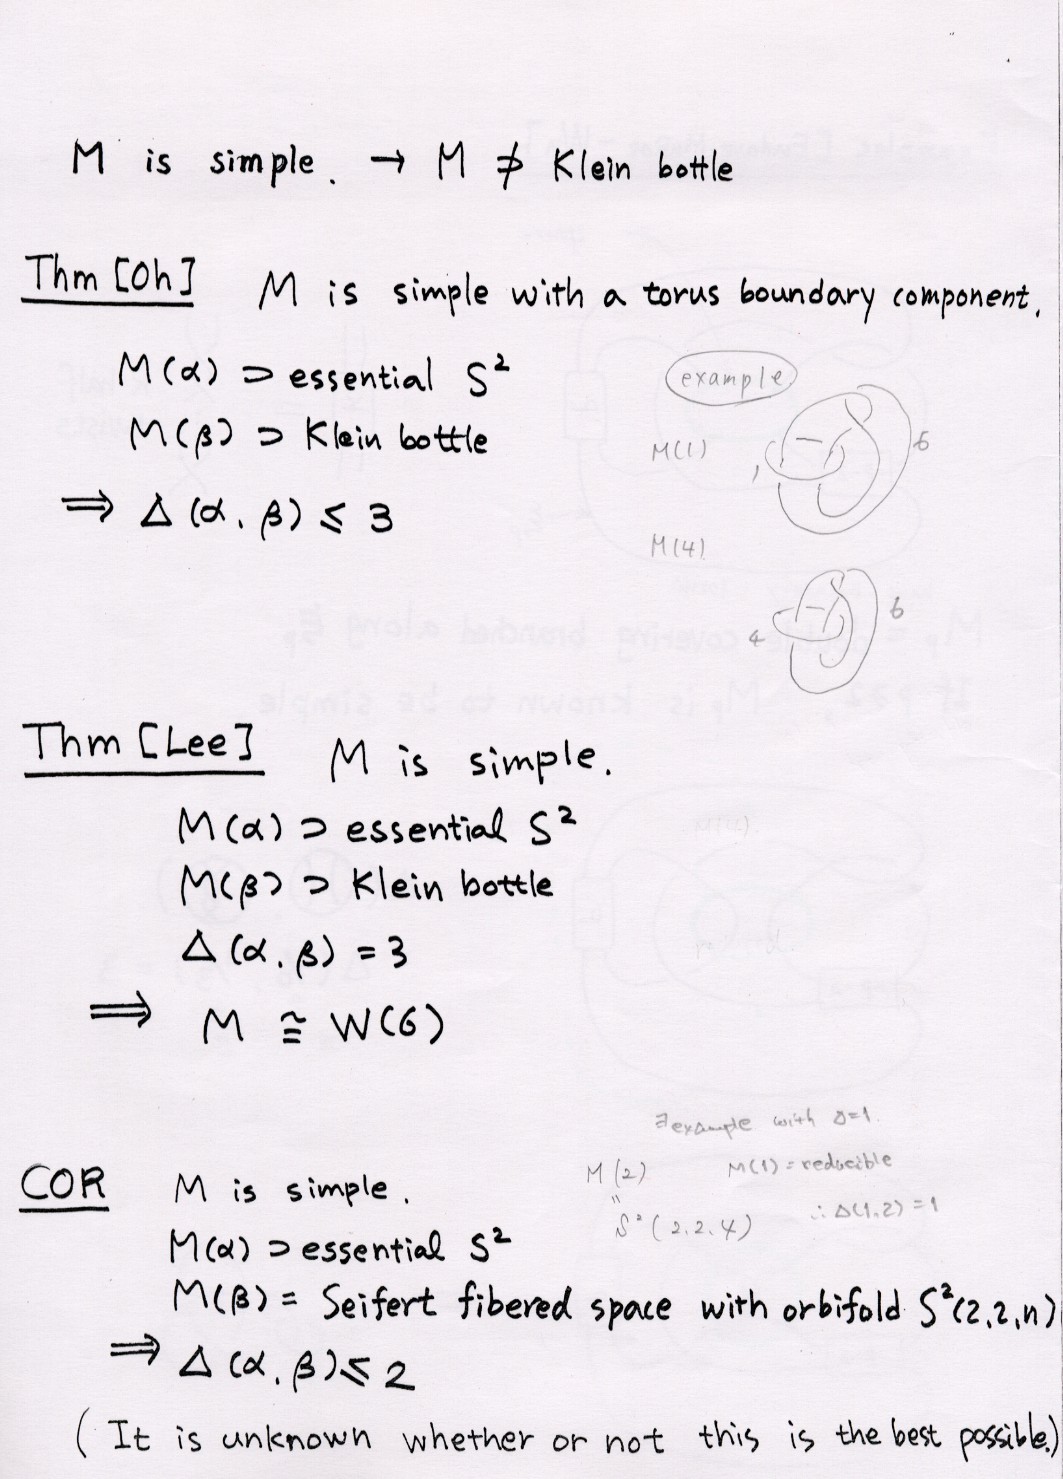 M is simple. → M ∌ Klein bottle
Thm [Oh] M is simple with a torus boundary component.
M(α) ⊃ essential S²
M(β) ⊃ Klein bottle
⇒ Δ(α, β) ≤ 3
example
M(1)
1
6
M(4)
4
6
Thm [Lee] M is simple.
M(α) ⊃ essential S²
M(β) ⊃ Klein bottle
Δ(α, β) = 3
⇒ M ≅ W(6)
∃example with Δ=1.
M(2) M(1) = reducible
"
S²(2,2,4) ∴ Δ(1,2) = 1
COR M is simple.
M(α) ⊃ essential S²
M(β) = Seifert fibered space with orbifold S²(2,2,n)
⇒ Δ(α, β) ≤ 2
(It is unknown whether or not this is the best possible.)